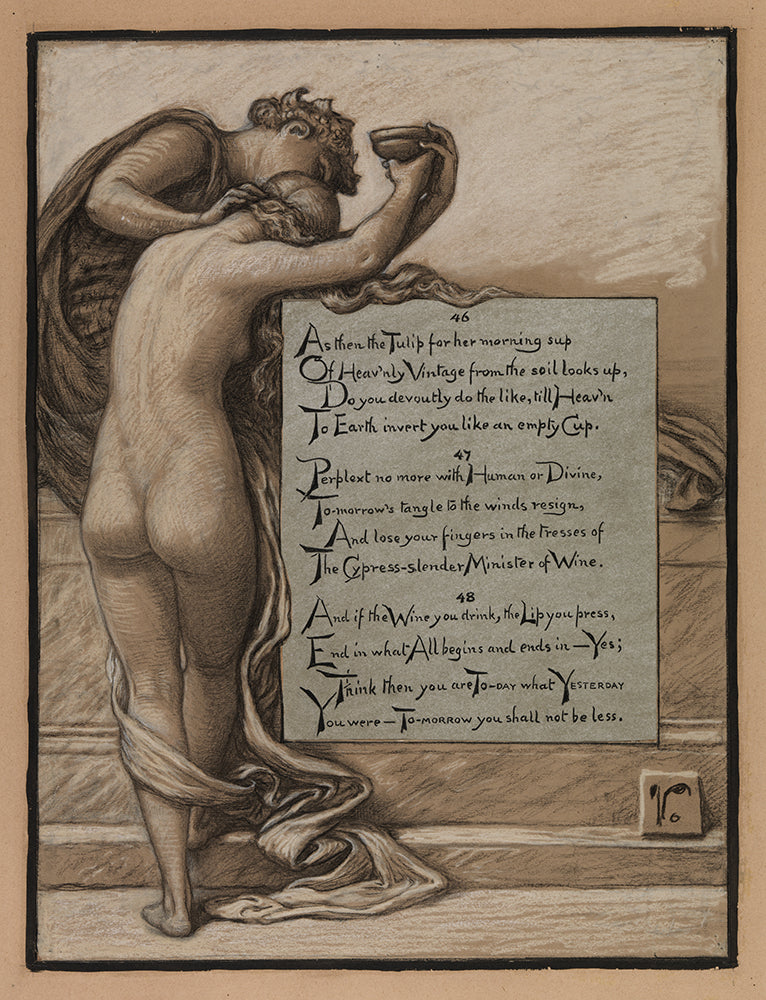 46
As then the Tulip for her morning sup
Of Heav'nly Vintage from the soil looks up,
Do you devoutly do the like, till Heav'n
To Earth invert you like an empty Cup.
47
Perplext no more with Human or Divine,
To-morrow's tangle to the winds resign,
And lose your fingers in the tresses of
The Cypress-slender Minister of Wine.
48
And if the Wine you drink, the Lip you press,
End in what All begins and ends in — Yes;
Think then you are TO-DAY what YESTERDAY
You were — TO-MORROW you shall not be less.